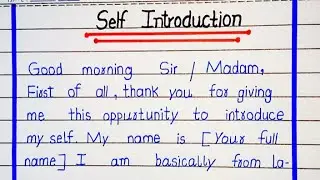 Self Introduction
Good morning Sir / Madam,
First of all, thank you for giving
me this oppurtunity to introduce
my self. My name is [Your full
name] I am basically from la-